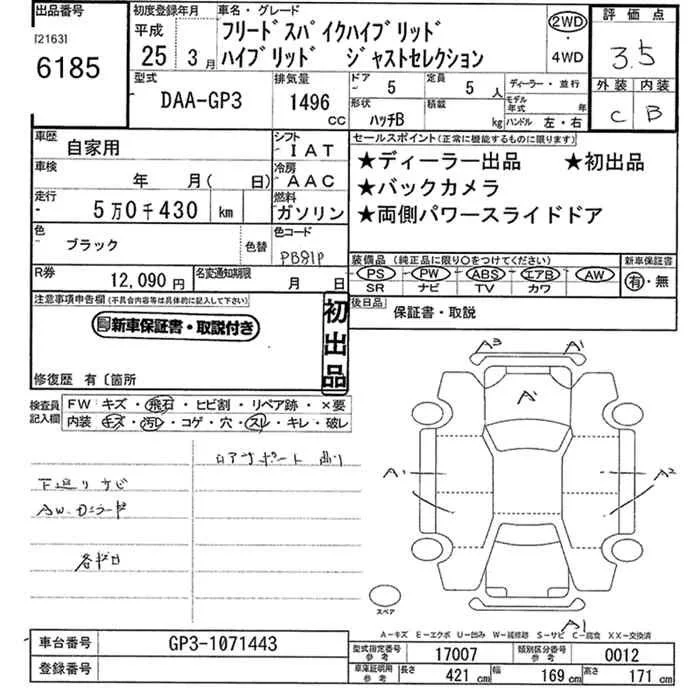 出品番号
[2163]
6185
初度登録年月
平成
25 3月
車名・グレード
フリード スパイクハイブリッド
ハイブリッド ジャストセレクション
2WD
・
4WD
評価点
3.5
外装 内装
C B
型式
DAA-GP3
排気量
1496
CC
ドア 5
定員 5 人
形状 ハッチB
積載 kg
ディーラー・並行
モデル年式 年
ハンドル 左・右
車歴
自家用
シフト
IAT
車検
年 月( 日)
冷房
AAC
走行
5万0千430 km
燃料
ガソリン
色
ブラック
色替
色コード
PB81P
R券
12,090円
名変通知期限
月 日
セールスポイント(正常に機能するものに限ります)
★ディーラー出品 ★初出品
★バックカメラ
★両側パワースライドドア
装備品 (純正品に限り○をつけてください)
PS PW ABS エアB AW
SR ナビ TV カワ
新車保証書
有・無
後日品
保証書・取説
注意事項申告欄(不具合内容等は具体的に記入して下さい)
新車保証書・取説付き
初出品
修復歴 有〔箇所
検査員記入欄
FW キズ・飛石・ヒビ割・リペア跡・×要
内装 キズ・汚レ・コゲ・穴・スレ・キレ・破レ
コアサポート曲り
下廻りサビ
AW・Gミラーキズ
A3 A1
A
A1 A2
A1
スペア
A-キズ E-エクボ U-凹み W-補修跡 S-サビ C-腐食 XX-交換済
車台番号
GP3-1071443
登録番号
型式指定番号 参考
17007
類別区分番号 参考
0012
車庫証明用 参考
長さ 421 cm
幅 169 cm
高さ 171 cm